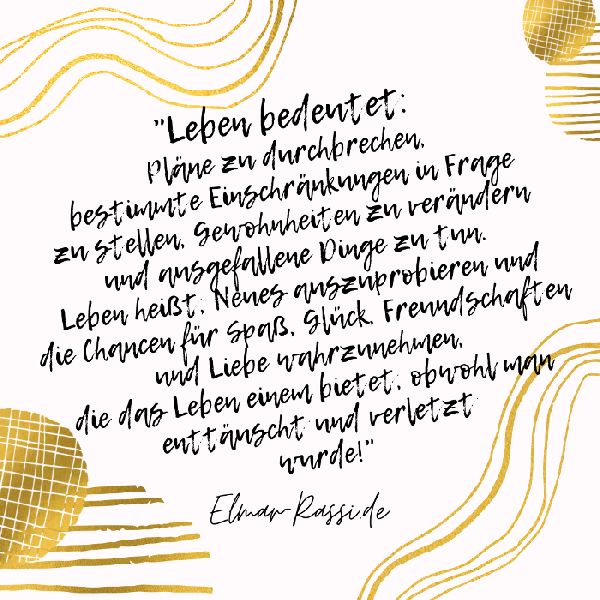 "Leben bedeutet:
Pläne zu durchbrechen,
bestimmte Einschränkungen in Frage
zu stellen, Gewohnheiten zu verändern
und ausgefallene Dinge zu tun.
Leben heißt, Neues auszuprobieren und
die Chancen für Spaß, Glück, Freundschaften
und Liebe wahrzunehmen,
die das Leben einem bietet, obwohl man
enttäuscht und verletzt
wurde!"
Elmar-Rassi.de